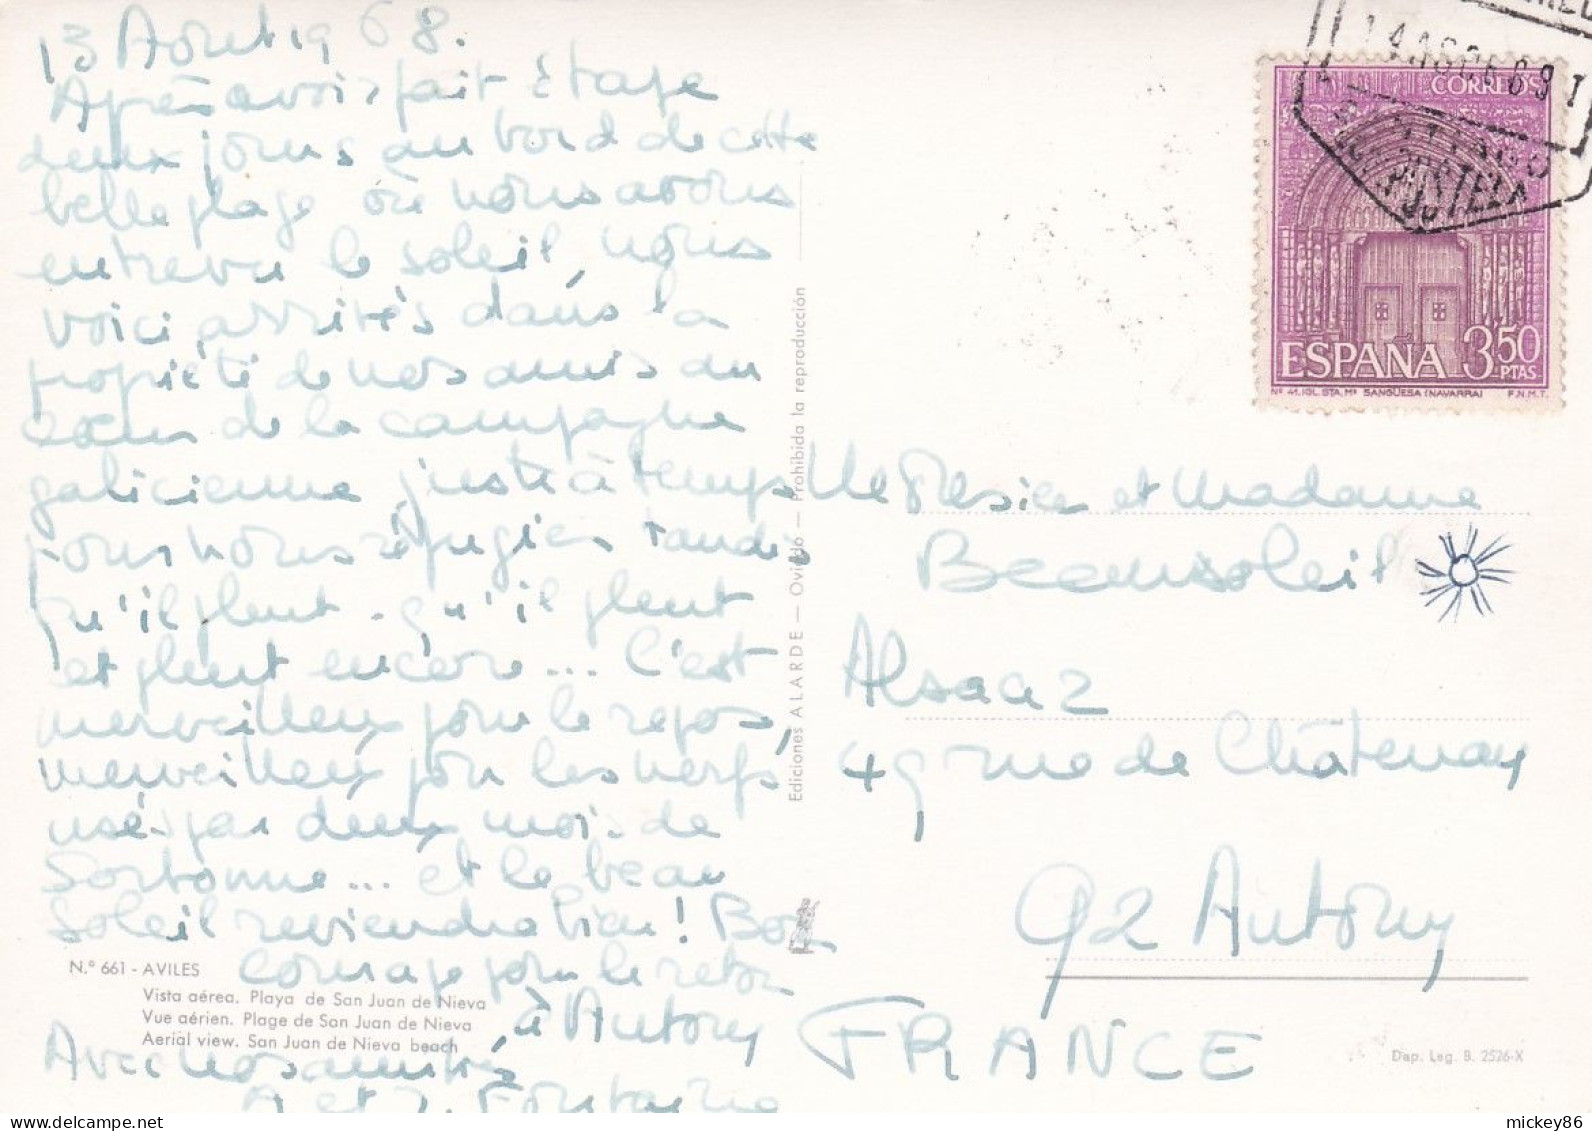 13 Août 1968.
Après avoir fait étape
deux jours au bord de cette
belle plage où nous avons
entrevu le soleil, nous
voici arrivés dans la
propriété de nos amis au
cœur de la campagne
galicienne, juste à temps
pour nous réfugier tandis
qu'il pleut - qu'il pleut
et pleut encore... C'est
merveilleux pour le repos,
merveilleux pour les nerfs
usés par deux mois de
Sorbonne... et le beau
soleil reviendra bien! Bon
courage pour le retour
à Antony
Avec nos amitiés
A et J. Fontaine
N.º 661 - AVILES
Vista aérea. Playa de San Juan de Nieva
Vue aérien. Plage de San Juan de Nieva
Aerial view. San Juan de Nieva beach
Ediciones ALARDE — Oviedo — Prohibida la reproducción
CORREOS
ESPAÑA 3,50
PTAS.
Nº 41. IGL. STA. Mª SANGÜESA (NAVARRA) F.N.M.T.
14 AGO
POSTELA
et Madame
Beausoleil
Alsaaz
49 rue de Châtenay
92 Antony
FRANCE
Dep. Leg. B. 2526-X
mickey86